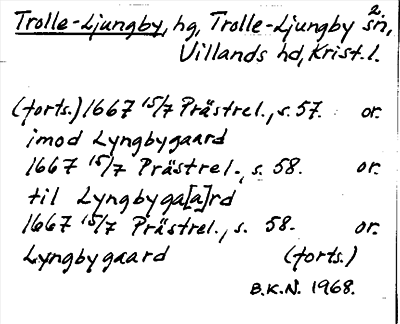 Trolle-Ljungby, hg, Trolle-Ljungby 2. sn,
Villands hd, Krist. l.
(forts.) 1667 15/7 Prästrel., s. 57. or.
imod Lyngbygaard
1667 15/7 Prästrel., s. 58. or.
til Lyngbyga[a]rd
1667 15/7 Prästrel., s. 58. or.
Lyngbygaard (forts.)
B.K.N. 1968.